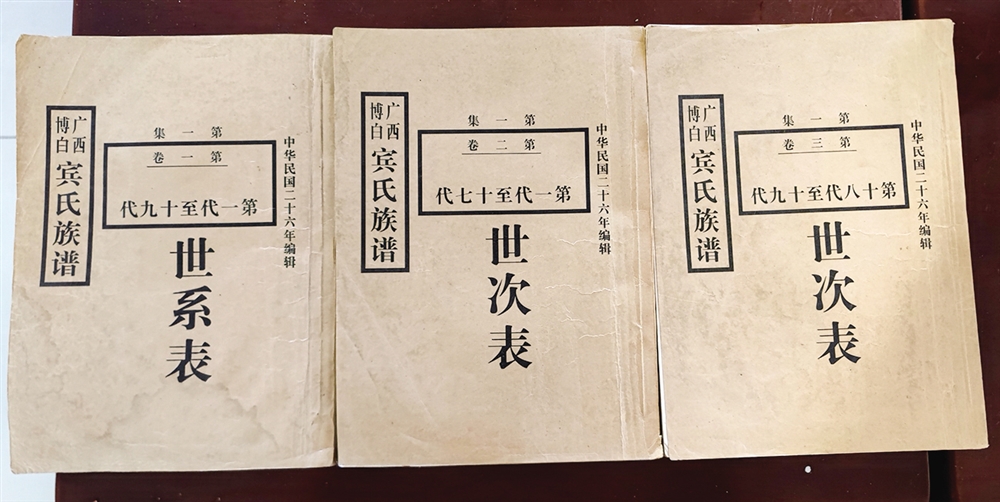 中华民国二十六年编辑
第一集
第一卷
第一代至十九代
世系表
广西
博白
宾氏族谱
中华民国二十六年编辑
第一集
第二卷
第一代至十七代
世次表
广西
博白
宾氏族谱
中华民国二十六年编辑
第一集
第三卷
第十八代至十九代
世次表
广西
博白
宾氏族谱